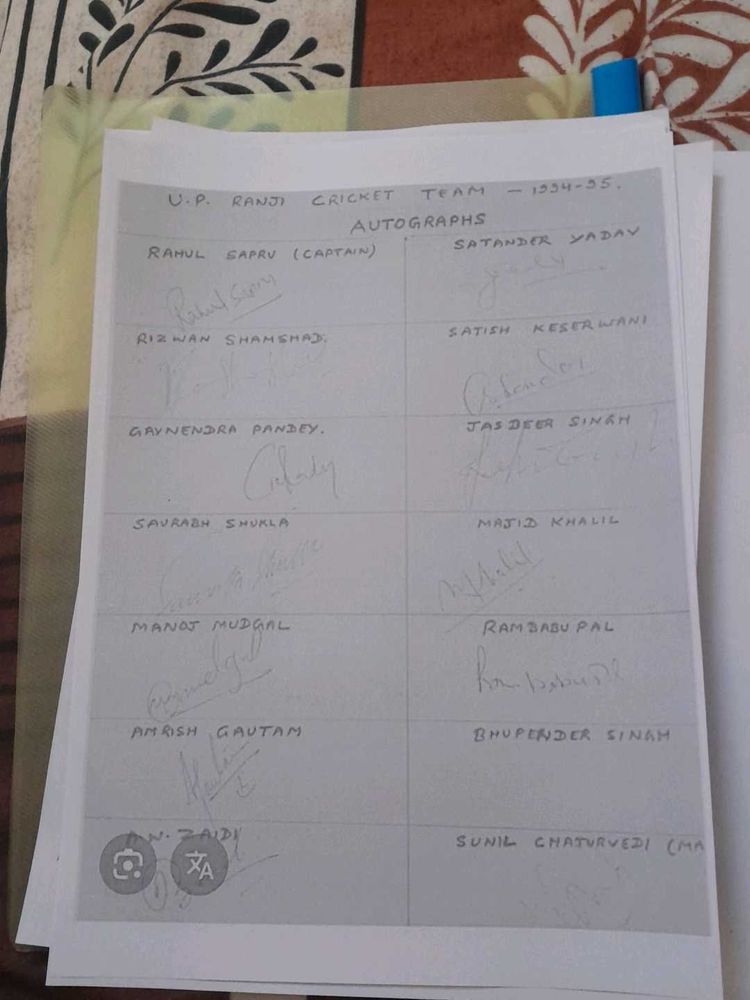 U.P. RANJI CRICKET TEAM – 1994-95.
AUTOGRAPHS
RAHUL SAPRU (CAPTAIN)
SATANDER YADAV
Rahul Sapru
RIZWAN SHAMSHAD.
SATISH KESERWANI
GAYNENDRA PANDEY.
JASDEER SINGH
SAURABH SHUKLA
MAJID KHALIL
Saurabh Shukla
MKhalil
MANOJ MUDGAL
RAMBABU PAL
AMRISH GAUTAM
BHUPENDER SINGH
A.N. ZAIDI
SUNIL CHATURVEDI (MA